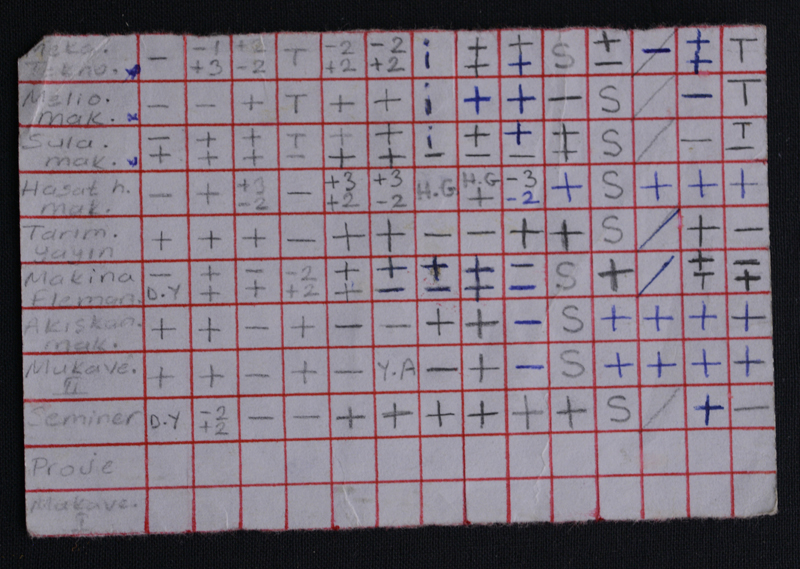 Meka. - -1 +2 T -2 -2 i + + S + / - + T
Tekno. +3 -2 +2 +2 + + - +
Melio. - - + T + + i + + - S / - T
mak.
Sula. - + + T + + i + + + S / - T
mak. + + + - + + - - - - -
Hasat h. - + +3 - +3 +3 H.G H.G -3 + S + + +
mak. -2 +2 -2 + -2
Tarım. + + + - + + - - + + S / + -
yayın
Makina - + - -2 + + + + - S + / + -
Eleman. D.Y + + +2 + - - + - + +
Akışkan. + + - + - - + + - S + + + +
mak.
Mukave. + + - + - Y.A - + - S + + + +
II
Seminer D.Y -2 - - + + + + + + S / + -
+2
Proje
Mukave.
I